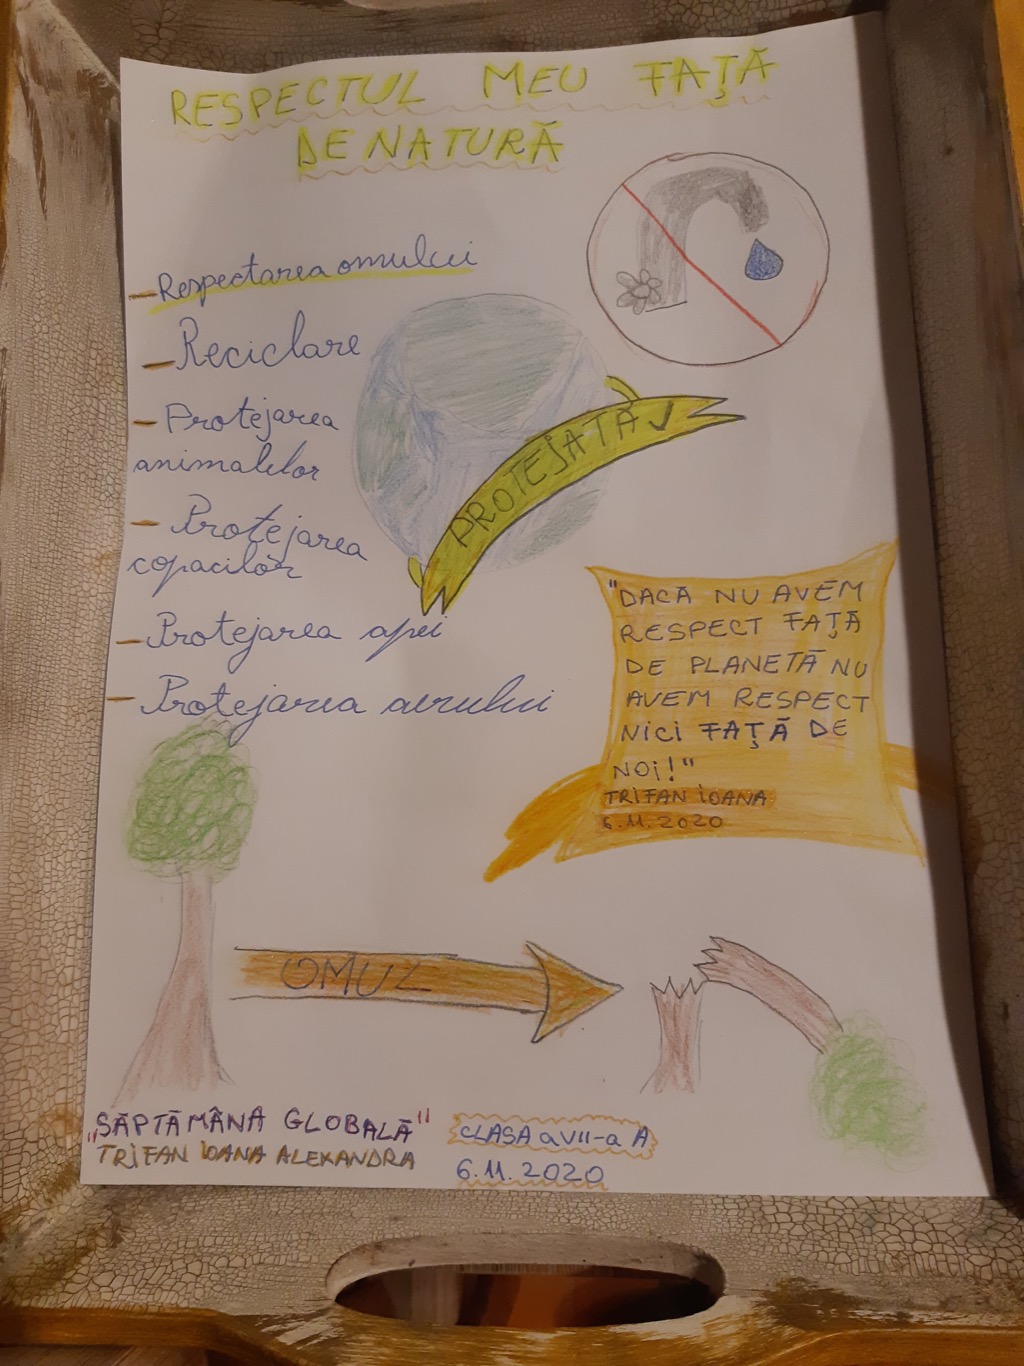 RESPECTUL MEU FAȚĂ
DE NATURĂ
- Respectarea omului
- Reciclare
- Protejarea
animalelor
- Protejarea
copacilor
- Protejarea apei
- Protejarea aerului
PROTEJATĂ ✓
"DACĂ NU AVEM
RESPECT FAȚĂ
DE PLANETĂ NU
AVEM RESPECT
NICI FAȚĂ DE
NOI!"
TRIFAN IOANA
6.11.2020
OMUL
„SĂPTĂMÂNA GLOBALĂ"
TRIFAN IOANA ALEXANDRA
CLASA a VII-a A
6.11.2020